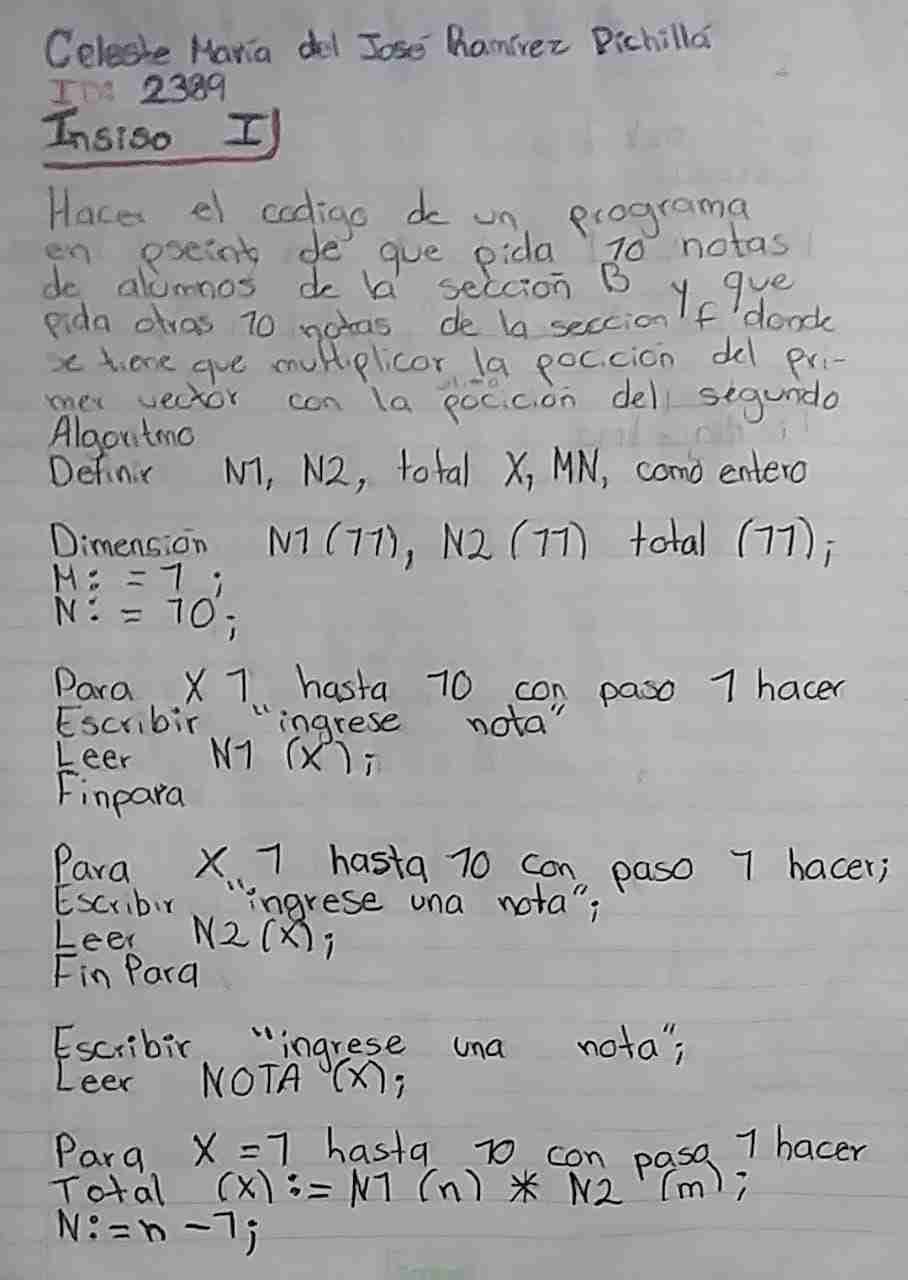 Celeste María del José Ramírez Pichillá
ID: 2389
Insiso I
Hacer el codigo de un programa
en pseint de que pida 10 notas
de alumnos de la sección B y que
pida otras 10 notas de la seccion f donde
se tiene que multiplicar la pocición del pri-
mer vector con la pocición del segundo
Algoritmo
Definir N1, N2, total X, MN, como entero
Dimensión N1 (11), N2 (11) total (11);
M: = 1 ;
N: = 10;
Para X 1 hasta 10 con paso 1 hacer
Escribir "ingrese nota"
Leer N1 (X);
Finpara
Para X 1 hasta 10 con paso 1 hacer;
Escribir "ingrese una nota";
Leer N2 (X);
Fin Para
Escribir "ingrese una nota";
Leer NOTA (X);
Para X = 1 hasta 10 con paso 1 hacer
Total (X) := N1 (n) * N2 (m);
N:= n - 1;